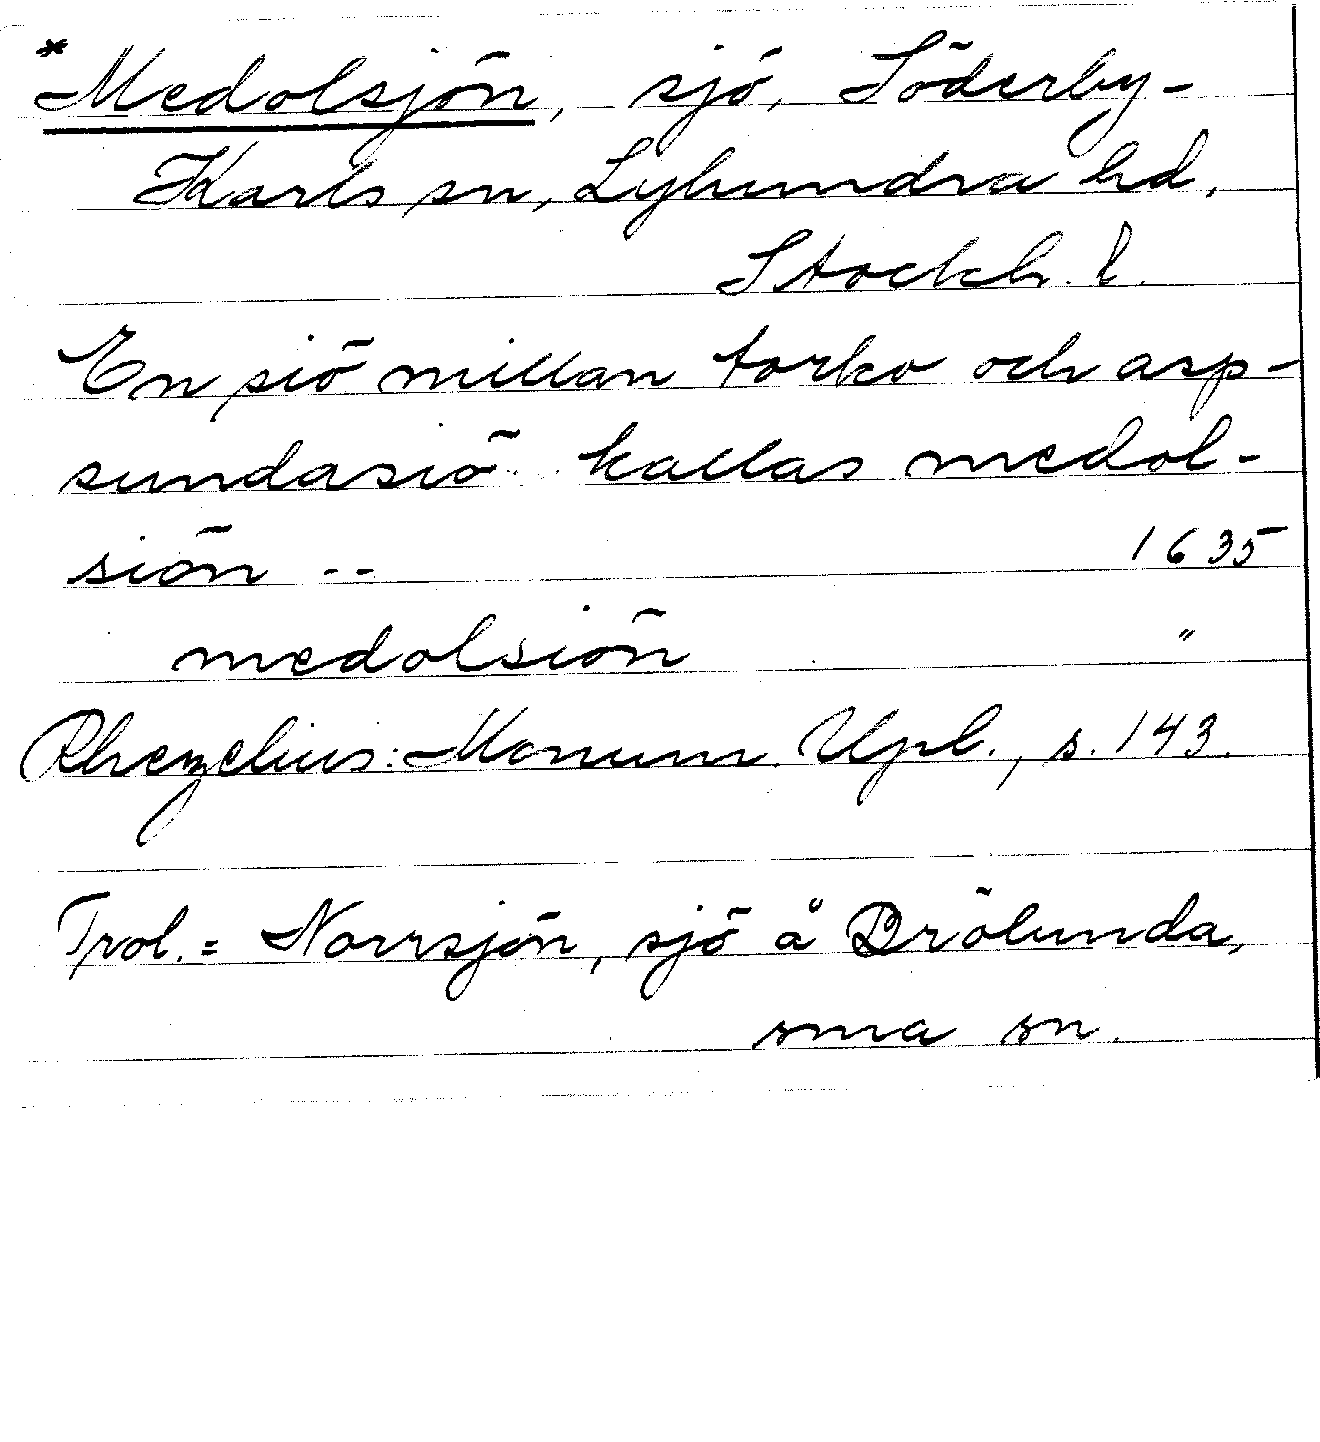 *Medolsjön, sjö, Söderby-
Karls sn, Lyhundra hd,
Stockh. l.
En siö millan torko och asp-
sundasiö kallas medol-
siön -- 1635
medolsiön "
Rhezelius: Monum. Upl., s. 143.
Trol. = Norrsjön, sjö å Drölunda,
sma sn.